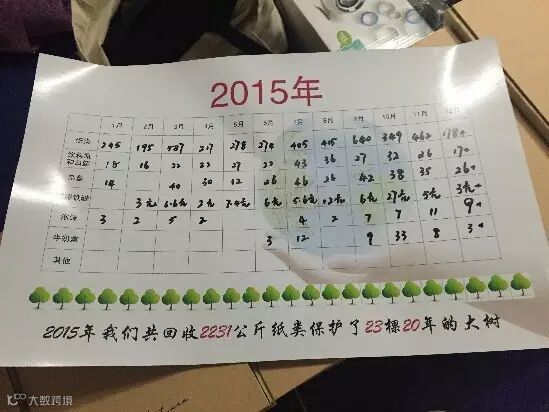 2015年
1月 2月 3月 4月 5月 6月 7月 8月 9月 10月 11月 12月
纸类 245 195 587 217 278 274 405 405 640 349 462 178+
18 16 22 22 27 22 43 36 27 32 26 17+
14 40 30 12 26 46 26 42 38 35 26+
3元 6.6元 2元 7.4元 6元 5.6元 12元 6元 27元 5元 3元+
3 2 5 2 4 2 7 7 11 9+
牛奶盒 3 12 9 33 8 3+
其他
2015年我们共回收2231公斤纸类保护了23棵20年的大树
大数跨境